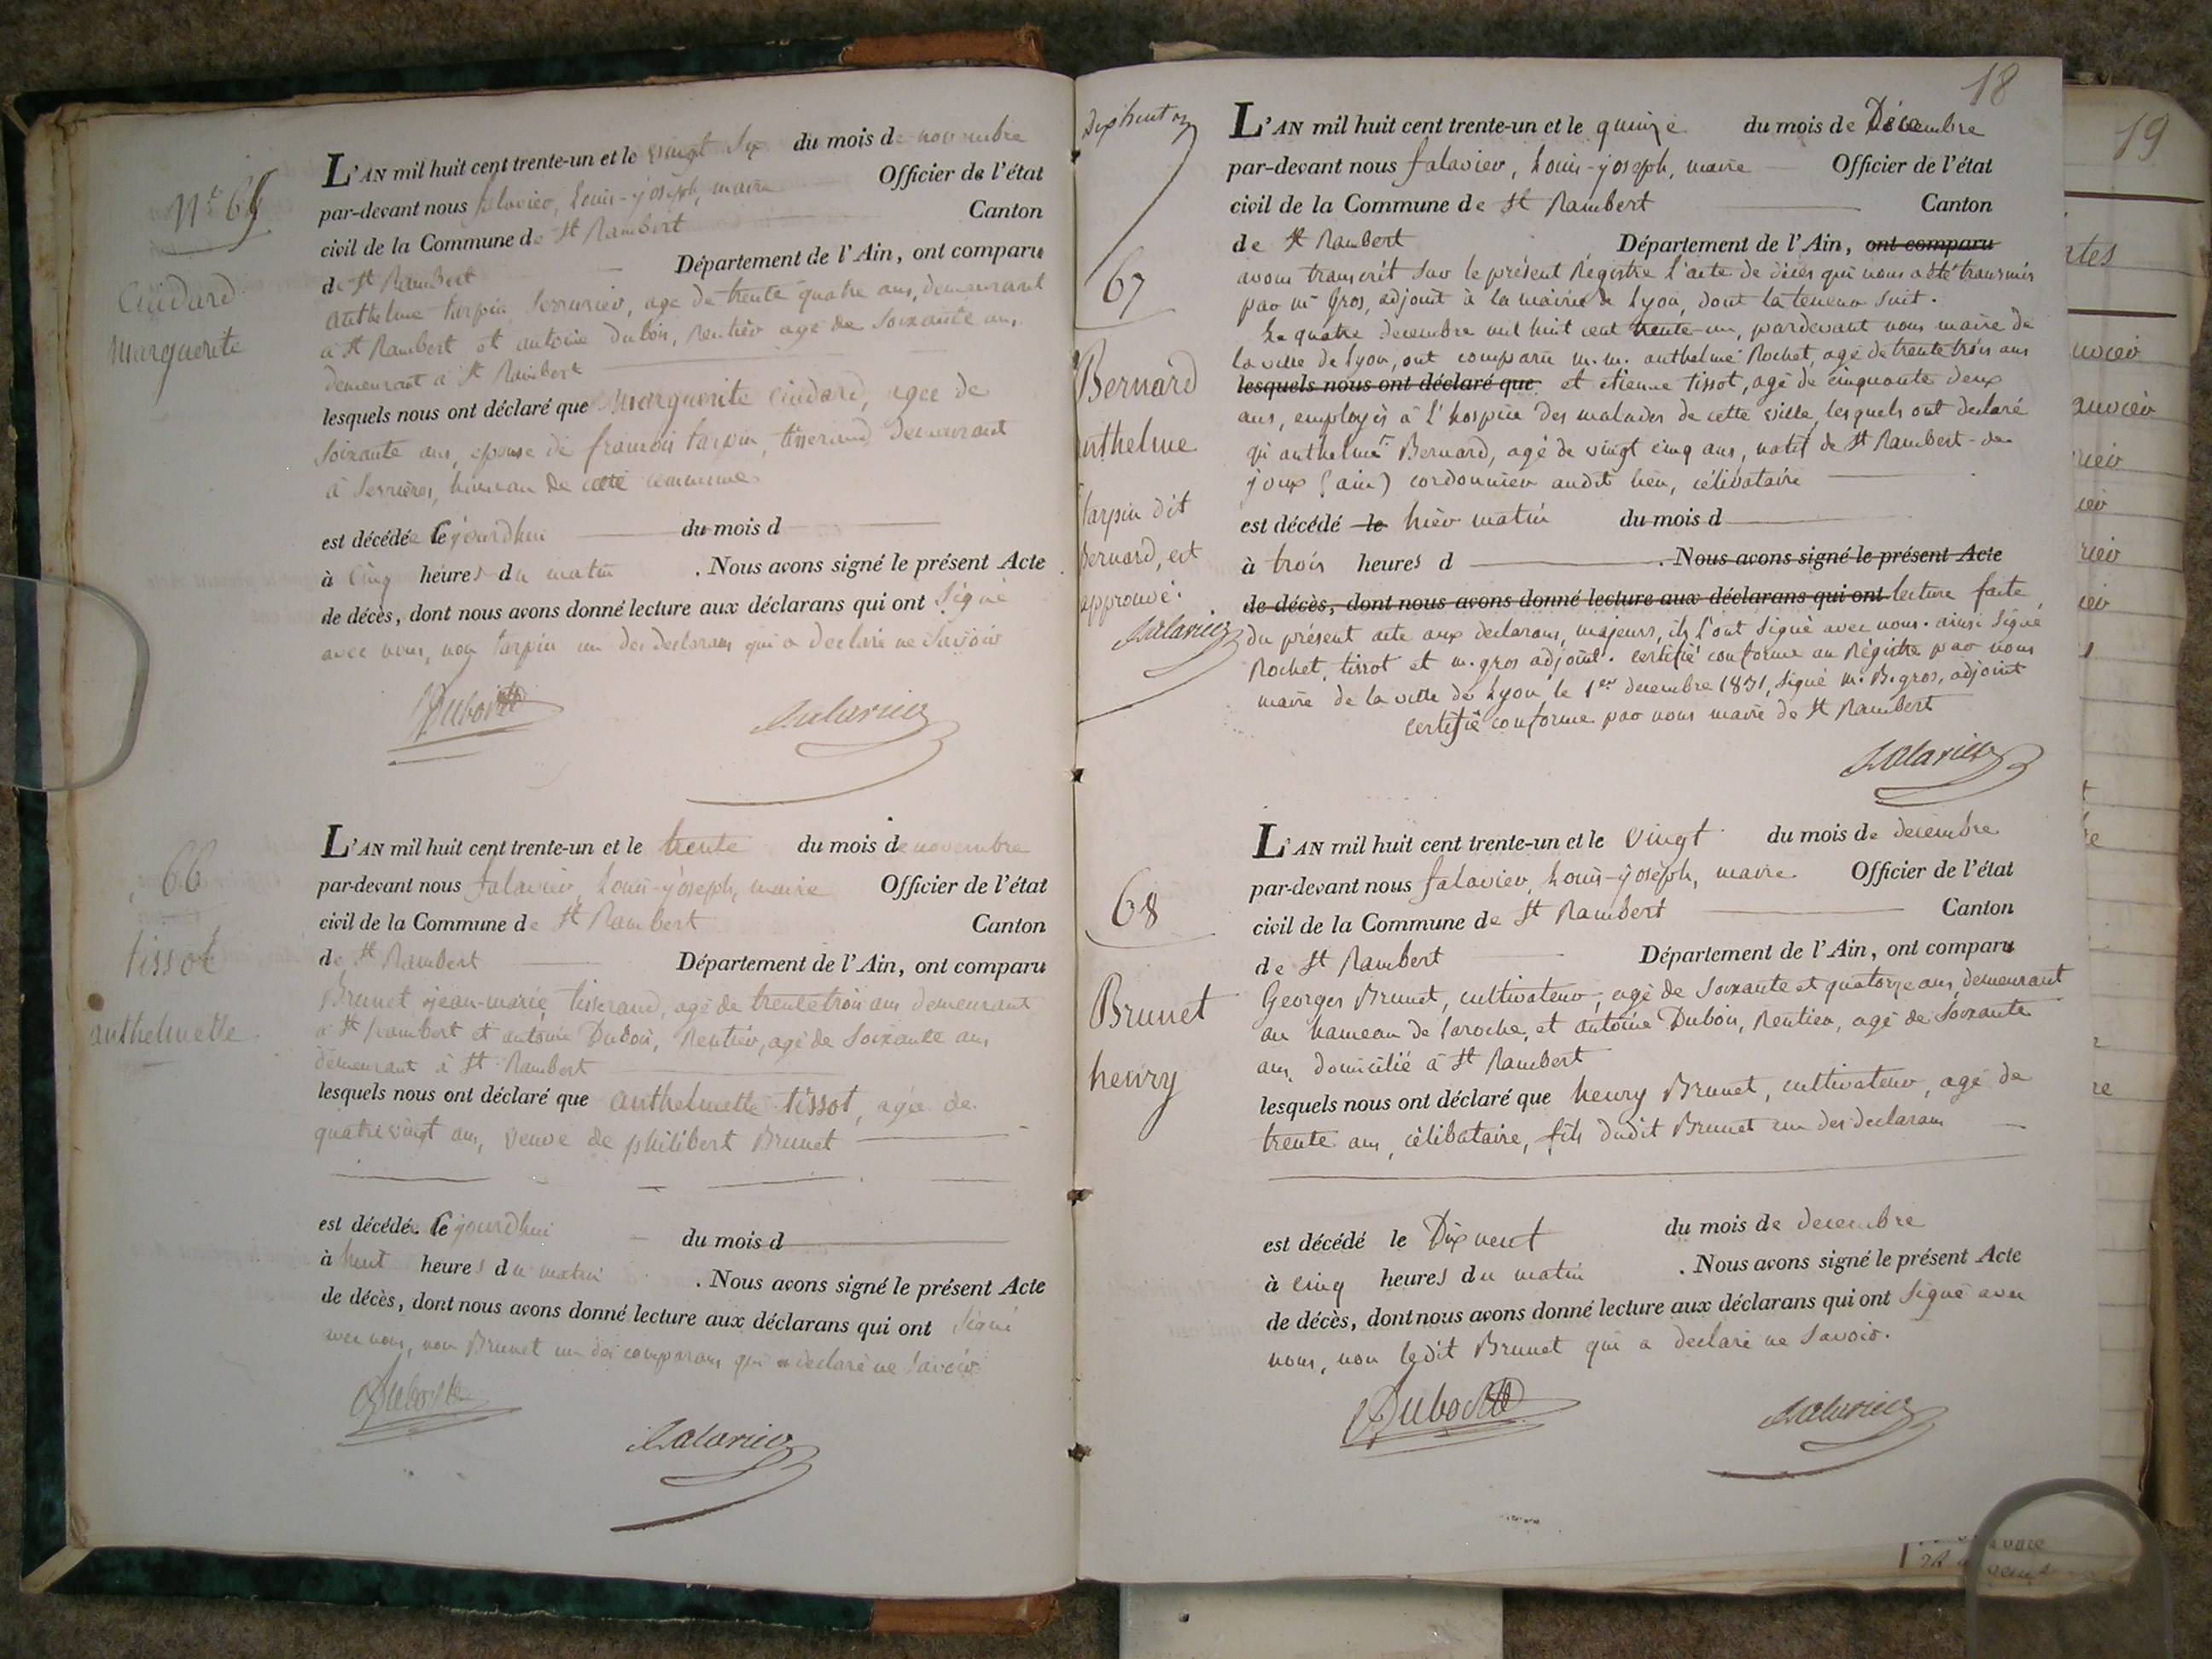 Nº 65
Cuidard
Marguerite
L'AN mil huit cent trente-un et le vingt six du mois de novembre
par-devant nous falavier, Louis-joseph, maire Officier de l'état
civil de la Commune de St Rambert Canton
de St Rambert Département de l'Ain, ont comparu
anthelme tarpin serrurier, agé de trente quatre ans, demeurant
à St Rambert et antoine dubois, rentier agé de soixante ans,
demeurant à St Rambert
lesquels nous ont déclaré que Marguerite Cuidard, agée de
soixante ans, epouse de francois tarpin, tisserand demeurant
à Serrières, hameau de cette commune
est décédée cejourdhui du mois d
à cinq heures du matin . Nous avons signé le présent Acte
de décès, dont nous avons donné lecture aux déclarans qui ont signé
avec nous, non tarpin un des declarans qui a declaré ne savoir
Dubois
falavier
66
tissot
anthelmette
L'AN mil huit cent trente-un et le trente du mois de novembre
par-devant nous falavier, Louis-joseph, maire Officier de l'état
civil de la Commune de St Rambert Canton
de St Rambert Département de l'Ain, ont comparu
Brunet jean-marie, tisserand, agé de trente trois ans demeurant
à St Rambert et antoine Dubois, Rentier, agé de soixante ans
demeurant à St Rambert
lesquels nous ont déclaré que anthelmette tissot, agée de
quatrevingt ans, veuve de philibert Brunet
est décédée cejourdhui du mois d
à huit heures du matin . Nous avons signé le présent Acte
de décès, dont nous avons donné lecture aux déclarans qui ont signé
avec nous, non Brunet un des comparans qui a declaré ne savoir
Dubois
falavier
18
67
Bernard
anthelme
tarpin dit
Bernard, est
approuvé.
falavier
L'AN mil huit cent trente-un et le quinze du mois de Décembre
par-devant nous falavier, Louis-joseph, maire Officier de l'état
civil de la Commune de St Rambert Canton
de St Rambert Département de l'Ain, ont comparu
avons transcrit sur le présent Régistre l'acte de décès qui nous a été transmis
par mr Gros, adjoint à la mairie de Lyon, dont la teneur suit.
Le quatre decembre mil huit cent trente-un, pardevant nous maire de
la ville de Lyon, ont comparu m.m. anthelme Rochet, agé de trente trois ans
lesquels nous ont déclaré que et etienne tissot, agé de cinquante deux
ans, employés à l'hospice des malades de cette ville, lesquels ont declaré
qu'anthelme Bernard, agé de vingt cinq ans, natif de St Rambert-de-
joux (ain) cordonnier audit lieu, célibataire
est décédé le hier matin du mois d
à trois heures d . Nous avons signé le présent Acte
de décès, dont nous avons donné lecture aux déclarans qui ont lecture faite
du présent acte aux declarans, majeurs, ils l'ont signé avec nous. ainsi signé
Rochet, tissot et m. gros adjoint. certifié conforme au Régistre par nous
maire de la ville de Lyon le 1er decembre 1831, signé m. B. gros, adjoint
certifié conforme par nous maire de St Rambert
falavier
68
Brunet
henry
L'AN mil huit cent trente-un et le vingt du mois de decembre
par-devant nous falavier, Louis-joseph, maire Officier de l'état
civil de la Commune de St Rambert Canton
de St Rambert Département de l'Ain, ont comparu
Georges Brunet, cultivateur, agé de soixante et quatorze ans, demeurant
au hameau de laroche, et antoine Dubois, Rentier, agé de soixante
ans, domicilié à St Rambert
lesquels nous ont déclaré que henry Brunet, cultivateur, agé de
trente ans, célibataire, fils dudit Brunet un des declarans
est décédé le Dix neuf du mois de decembre
à cinq heures du matin . Nous avons signé le présent Acte
de décès, dont nous avons donné lecture aux déclarans qui ont signé avec
nous, non ledit Brunet qui a declaré ne savoir.
Dubois
falavier
19